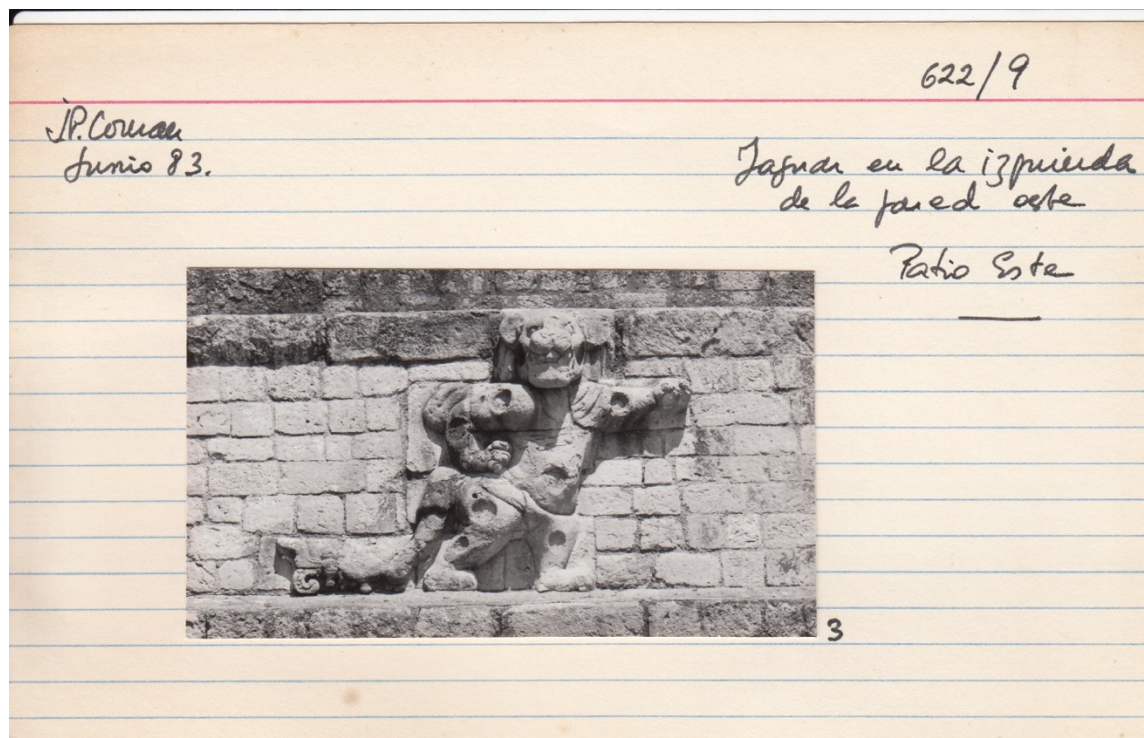 622/9
J.P. Courau
Junio 83.
Jaguar en la izquierda
de la pared oeste
Patio Este
3